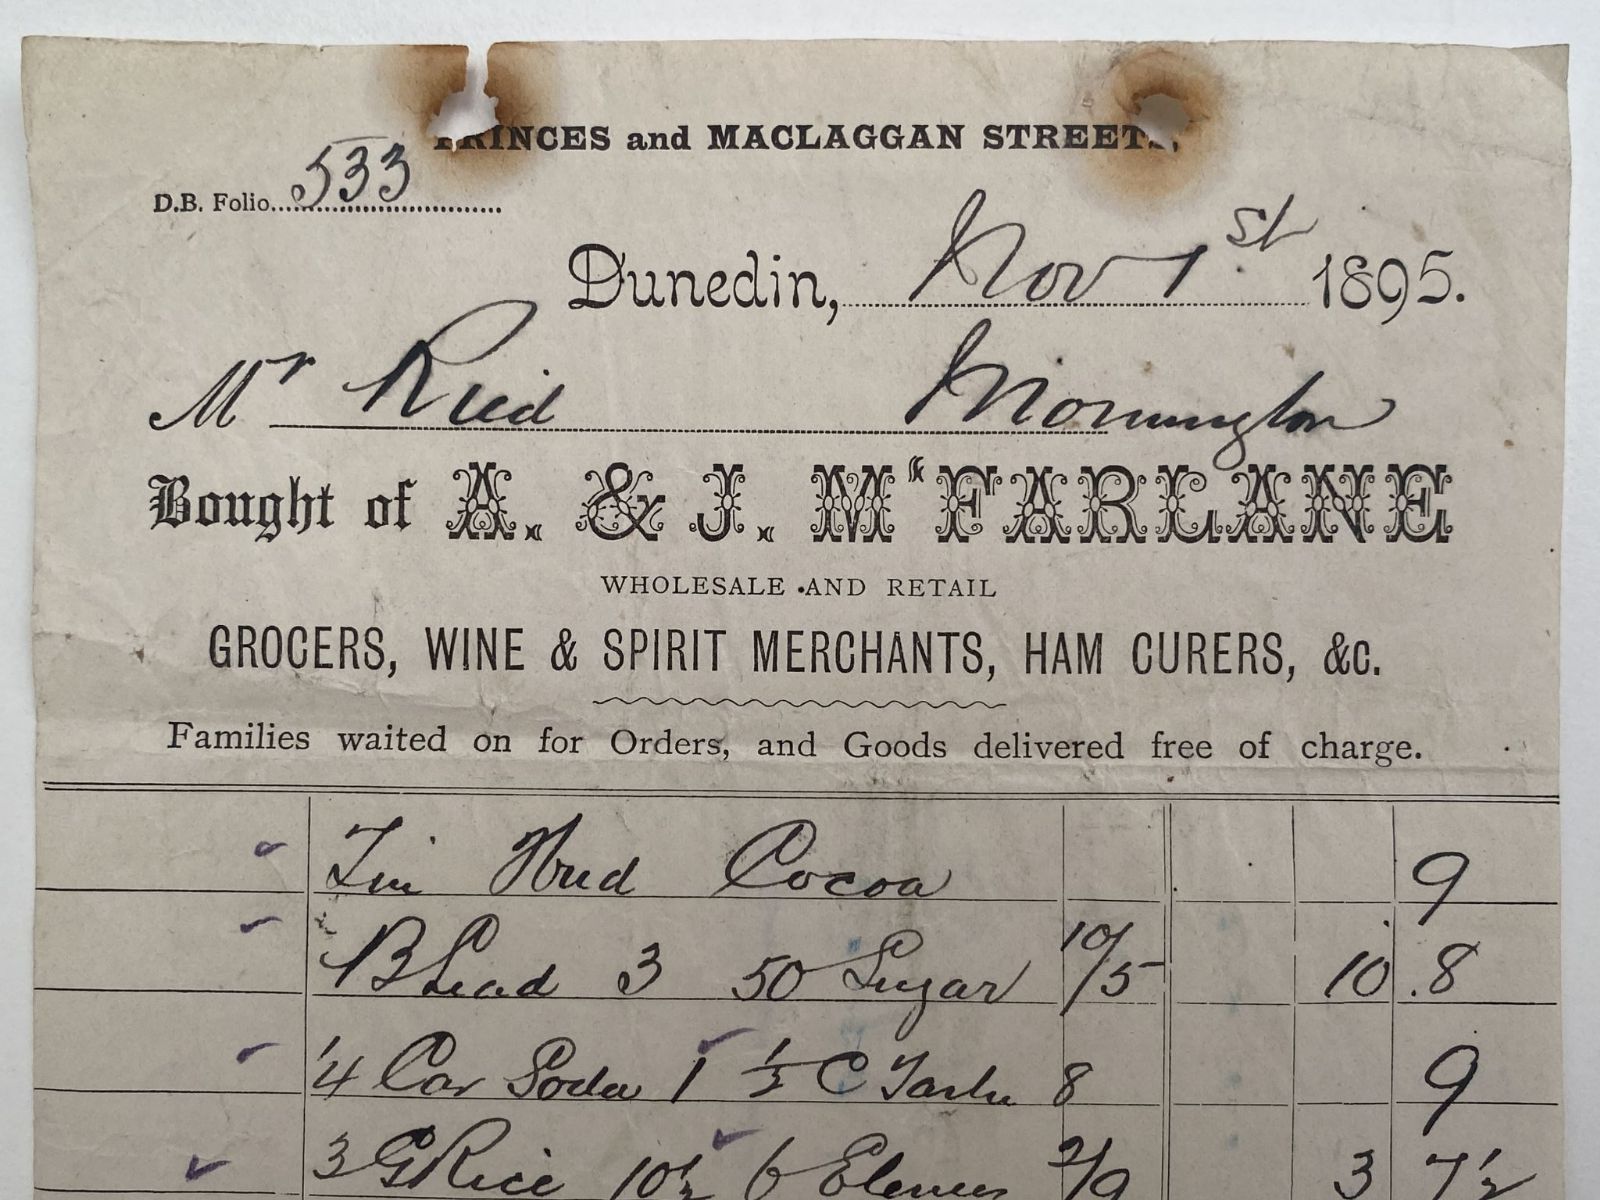 PRINCES and MACLAGGAN STREETS,
D.B. Folio 533
Dunedin, Nov 1st 1895.
Mr Reid Mornington
Bought of A. & J. McFARLANE
WHOLESALE AND RETAIL
GROCERS, WINE & SPIRIT MERCHANTS, HAM CURERS, &c.
Families waited on for Orders, and Goods delivered free of charge.
Tin Cocoa 9
B Lead 3 50 Sugar 10/5 10 8
1/4 Car Soda 1 C Tartar 8 9
3 G Rice 10½ 6 2/9 3 7½